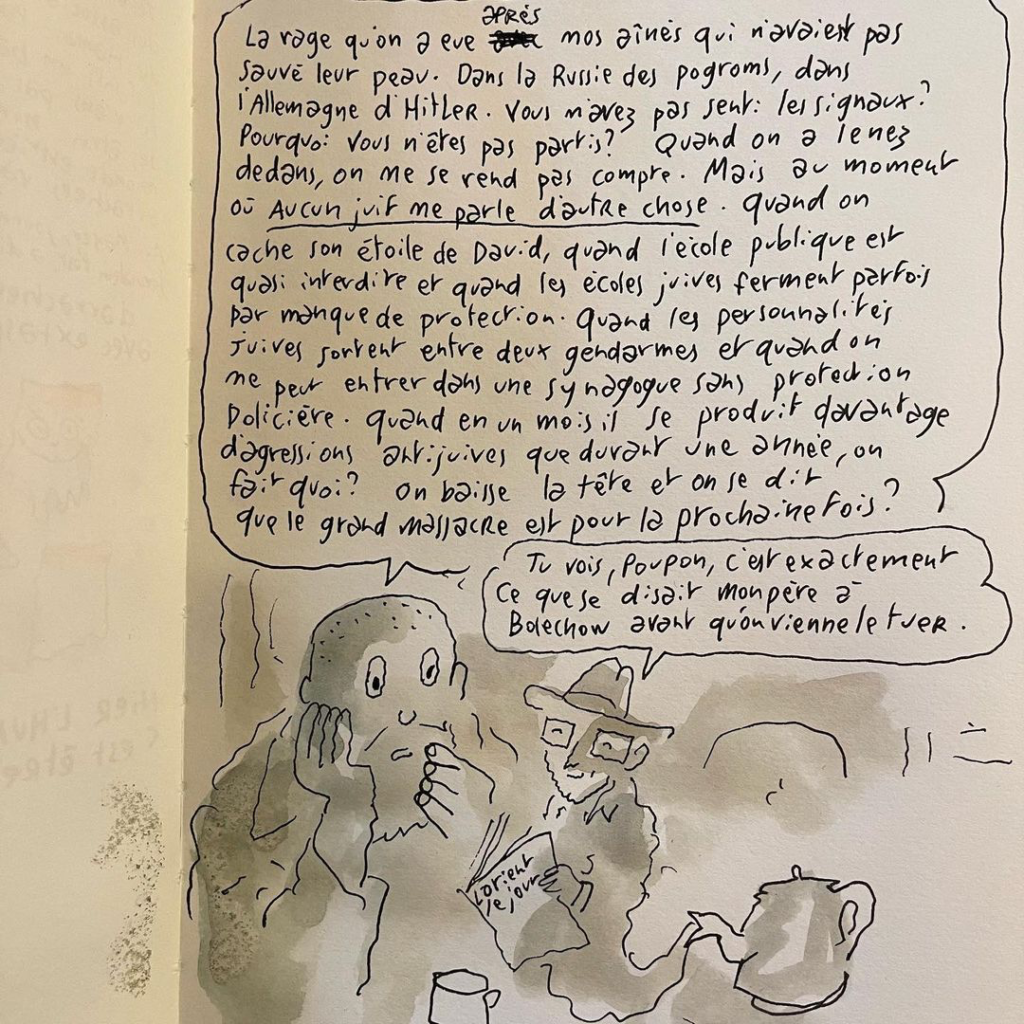 après
La rage qu'on a eue nos aînés qui n'avaient pas
sauvé leur peau. Dans la Russie des pogroms, dans
l'Allemagne d'Hitler. Vous n'avez pas senti les signaux?
Pourquoi vous n'êtes pas partis? Quand on a le nez
dedans, on ne se rend pas compte. Mais au moment
où Aucun juif ne parle d'autre chose. quand on
cache son étoile de David, quand l'école publique est
quasi interdite et quand les écoles juives ferment parfois
par manque de protection. quand les personnalités
juives sortent entre deux gendarmes et quand on
ne peut entrer dans une synagogue sans protection
policière. quand en un mois il se produit davantage
d'agressions antijuives que durant une année, on
fait quoi? on baisse la tête et on se dit
que le grand massacre est pour la prochaine fois?
Tu vois, Poupon, c'est exactement
ce que se disait mon père à
Bolechow avant qu'on vienne le tuer.
L'orient
le jour